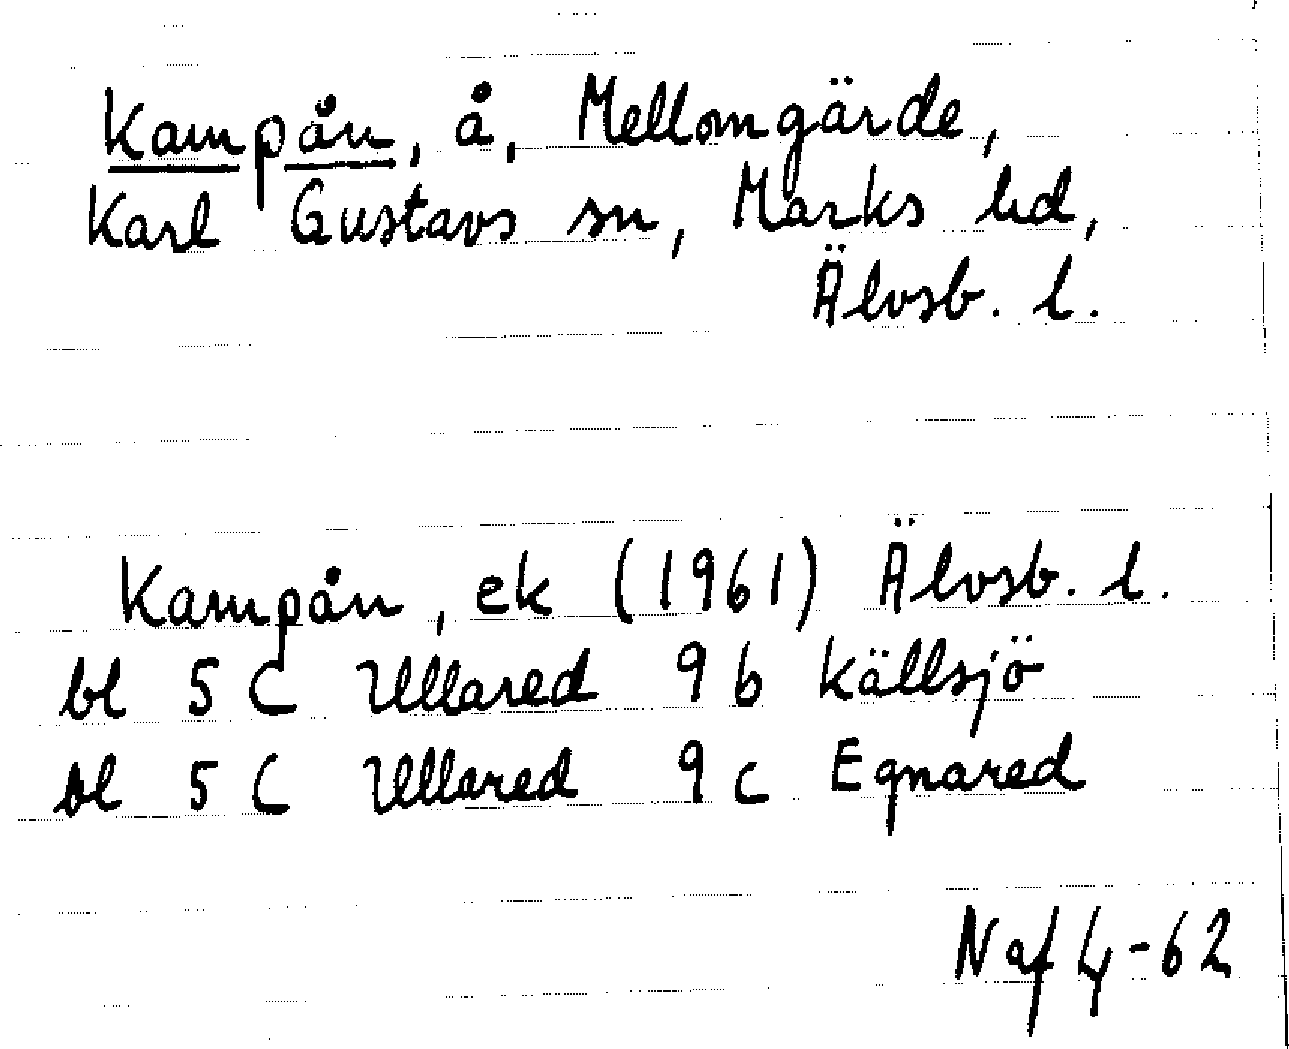 Kampån, å, Mellomgärde,
Karl Gustavs sn, Marks hd,
Älvsb. l.
Kampån, ek (1961) Älvsb. l.
bl 5 C Ullared 9 b Källsjö
bl 5 C Ullared 9 c Eqnared
Naf 4-62